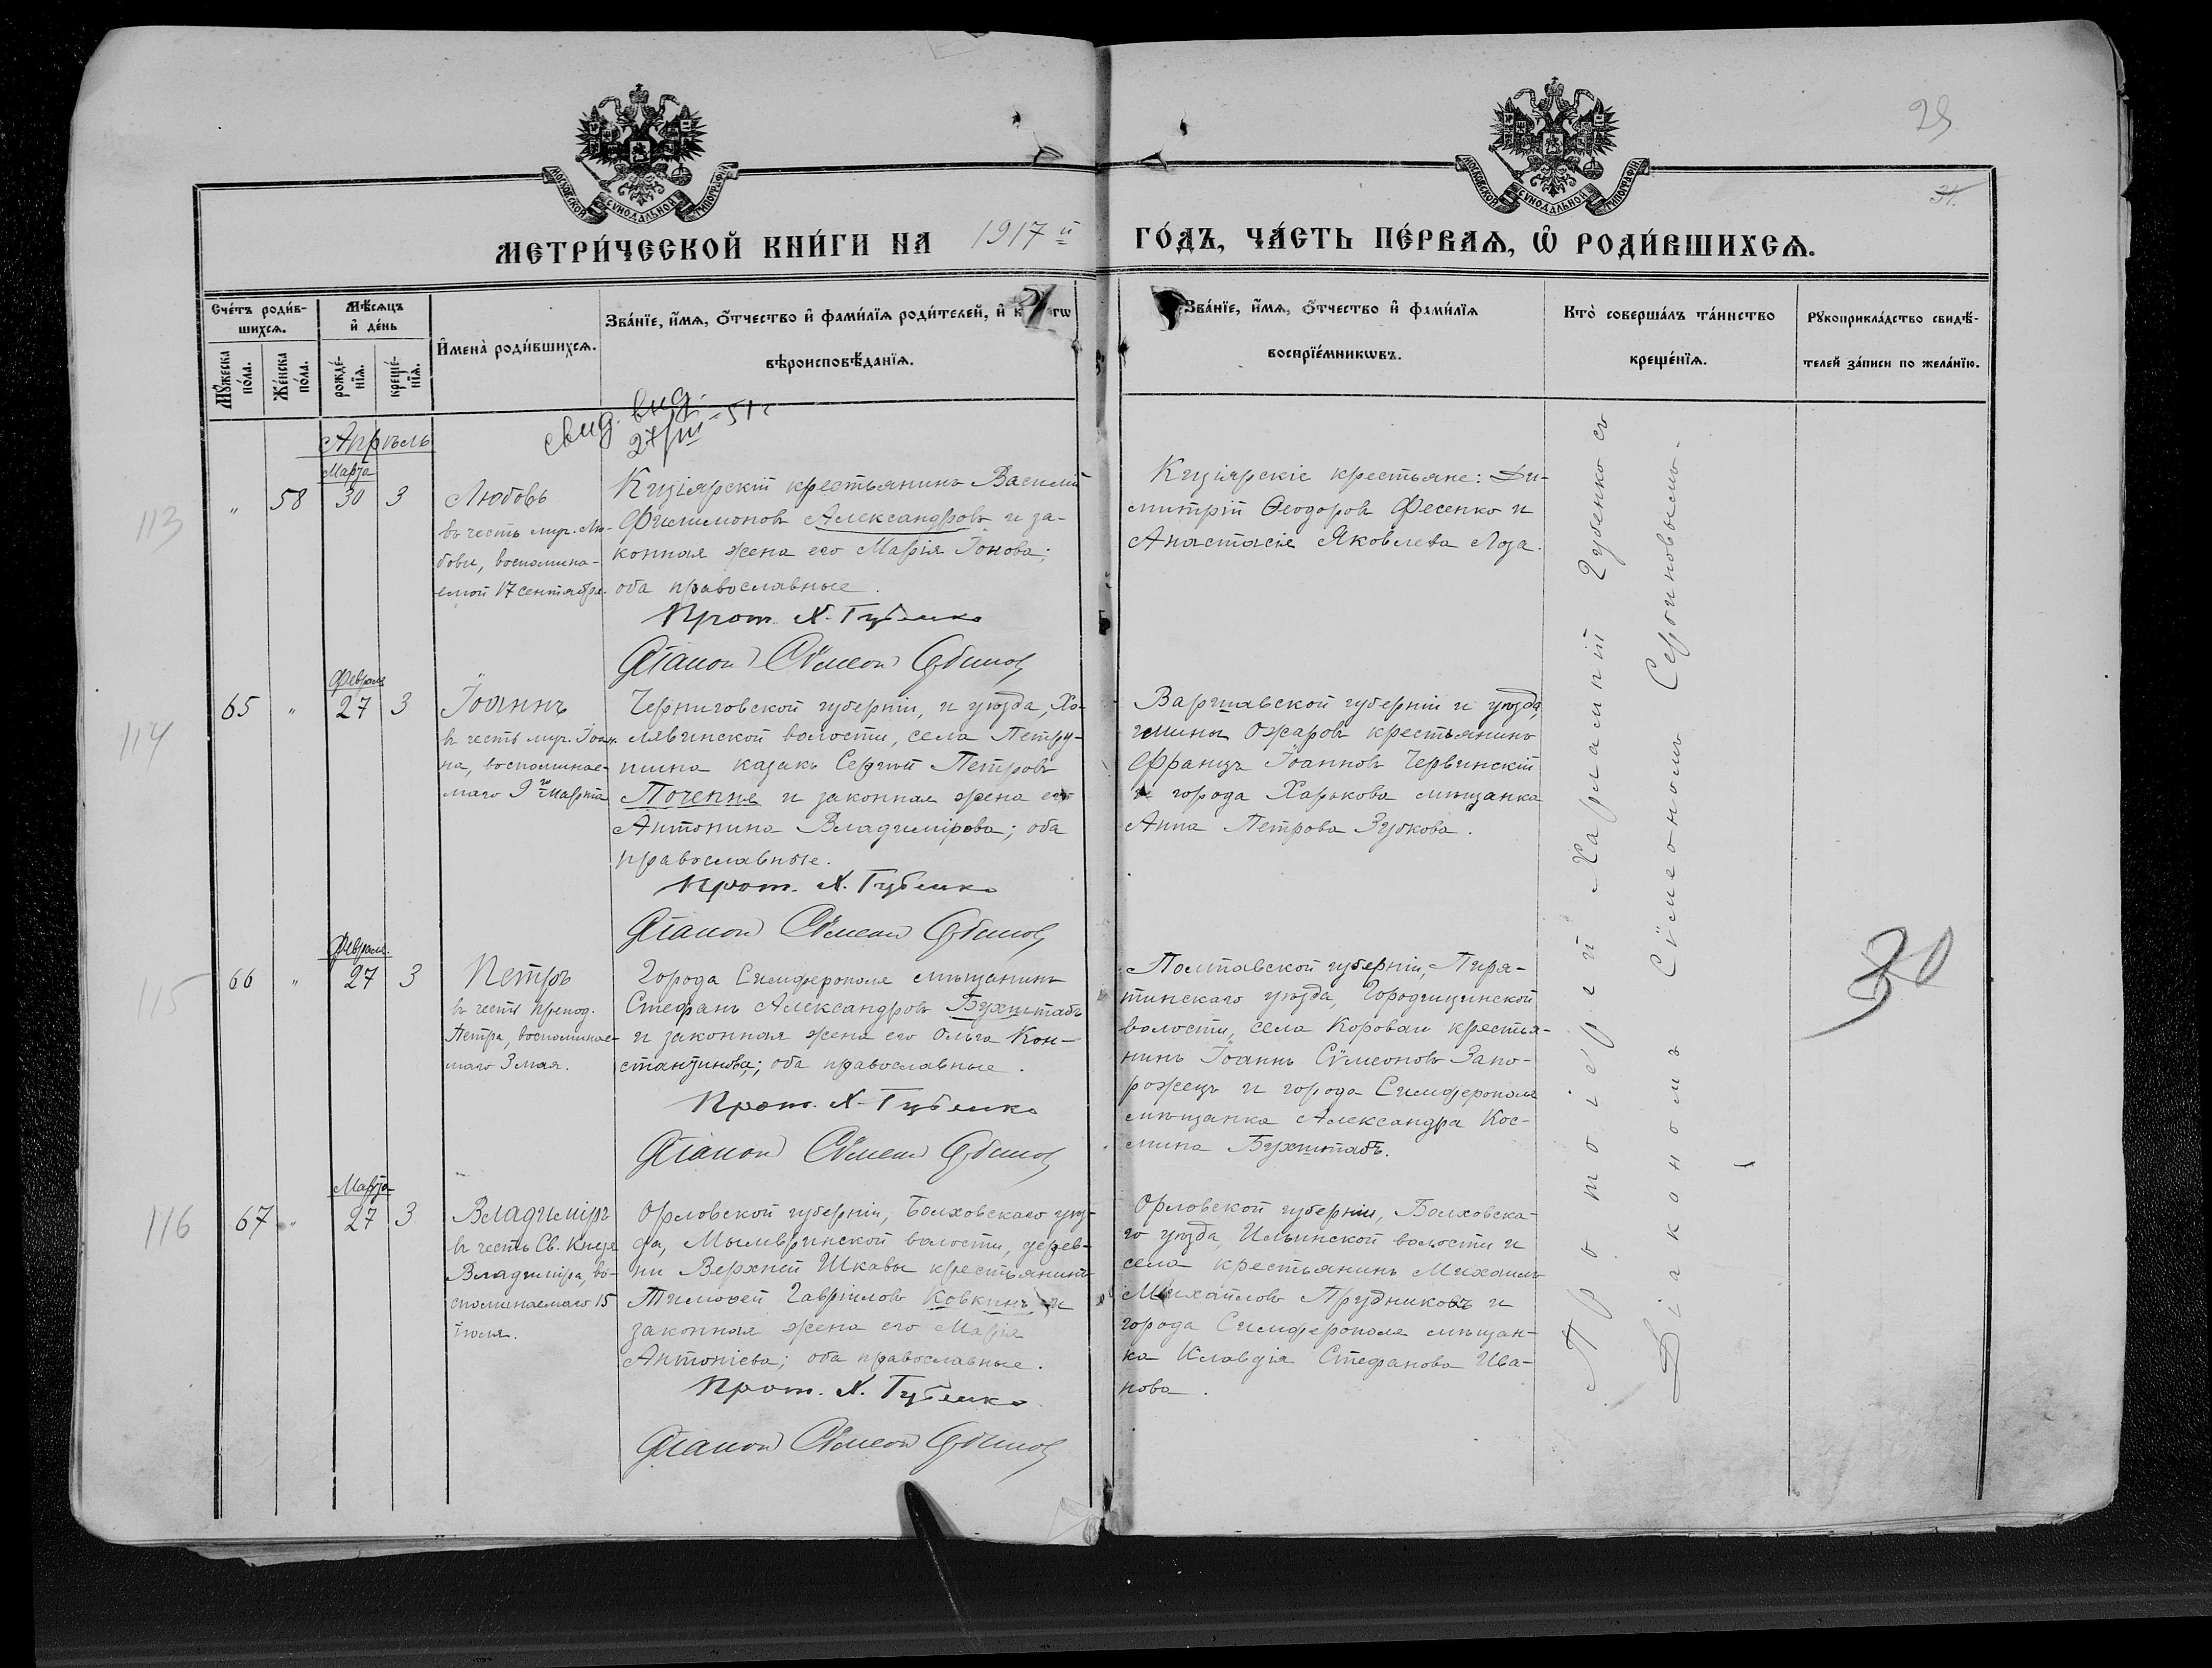 29
31.
МОСКОВСКОЙ СѴНОДАЛЬНОЙ ТИПОГРАФІИ
МОСКОВСКОЙ СѴНОДАЛЬНОЙ ТИПОГРАФІИ
МЕТРИ́ЧЕСКОЙ КНИ́ГИ НА 1917й ГО́ДЪ, ЧА́СТЬ ПЕ́РВАѦ, Ѿ РОДИ́ВШИХСѦ.
Сче́тъ роди́в-
шихсѧ.
Мꙋ́жеска по́ла.
Же́нска по́ла.
Мѣ́сѧцъ
и҆ де́нь
рожде́-
нїѧ.
креще́-
нїѧ.
И҆мена̀ роди́вшихсѧ.
Зва́нїе, и҆́мѧ, о҆́тчество и҆ фами́лїѧ роди́телей, и҆
вѣроисповѣ́данїѧ.
Зва́нїе, и҆́мѧ, о҆́тчество и҆ фами́лїѧ
воспрїе́мникѡвъ.
Кто̀ соверша́лъ та́инство
креще́нїѧ.
Рꙋкоприкла́дство свидѣ́-
телей за́писи по жела́нїю.
свид. выд.
27/III-51г
Апрѣль
113
" 58
Марта
30 3
Любовь
въ честь муч. Лю-
бови, воспомина-
емой 17 сентября.
Кизіярскій крестьянинъ Василій
Филимоновъ Александровъ и за-
конная жена его Марія Іонова;
оба православные.
Прот. Х. Губенко
Діаконъ Сѵмеонъ
Кизіярскіе крестьяне: Ди-
митрій Ѳеодоровъ Фесенко и
Анастасія Яковлева Лоза.
114
65 "
Февраля
27 3
Іоаннъ
въ честь муч. Іоан-
на, воспоминае-
маго 9го марта
Черниговской губерніи, и уѣзда, Хо-
лявинской волости, села Петру-
шина казакъ Сергій Петровъ
Почепня и законная жена его
Антонина Владимірова; оба
православные.
Прот. Х. Губенко
Діаконъ Сѵмеонъ
Варшавской губерніи и уѣзда,
гмины Ожаровъ крестьянинъ
Францъ Іоанновъ Червинскій
и города Харькова мѣщанка
Анна Петрова Зубкова.
115
66 "
Февраля
27 3
Петръ
въ честь препод.
Петра, воспоминае-
маго 3 мая.
Города Симферополя мѣщанинъ
Стефанъ Александровъ Бухштабъ
и законная жена его Ольга Кон-
стантинова; оба православные.
Прот. Х. Губенко
Діаконъ Сѵмеонъ
Полтавской губерніи, Пиря-
тинскаго уѣзда, Городищинской
волости, села Коровай крестья-
нинъ Іоаннъ Сѵмеоновъ Запо-
рожецъ и города Симферополя
мѣщанка Александра Кос-
мина Бухштабъ.
30
116
67 "
Марта
27 3
Владиміръ
въ честь Св. Князя
Владиміра, во-
споминаемаго 15
іюля.
Орловской губерніи, Болховскаго уѣз-
да, Мымринской волости, дерев-
ни Верхней Шкавы крестьянинъ
Тимоѳей Гавріиловъ Ковкинъ, и
законная жена его Марія
Антоніева; оба православные.
Прот. Х. Губенко
Діаконъ Сѵмеонъ
Орловской губерніи, Болховска-
го уѣзда, Ильинской волости и
села крестьянинъ Михаилъ
Михайловъ Прудниковъ и
города Симферополя мѣщан-
ка Клавдія Стефанова Ива-
нова.
Протоіерей Харлампій Губенко съ
Діакономъ Сѵмеономъ